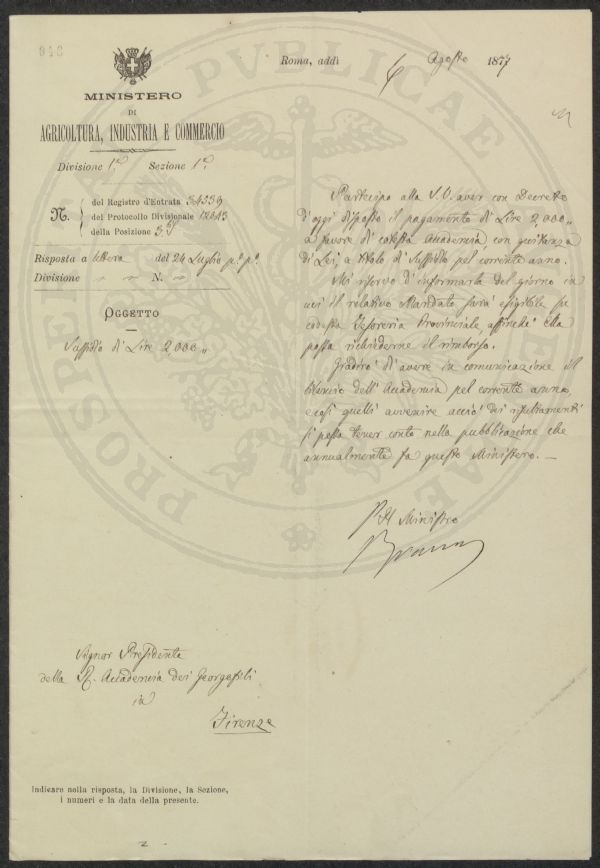 Roma, addì 6 Agosto 1877
MINISTERO
DI
AGRICOLTURA, INDUSTRIA E COMMERCIO
Divisione 1ª Sezione 1ª
N.
del Registro d'Entrata 34339
del Protocollo Divisionale 12643
della Posizione
Risposta a lettera del 24 Luglio p.º p.º
Divisione " " N. "
OGGETTO
Sussidio di Lire 2000 "
Partecipo alla S.V. aver con Decreto
d'oggi disposto il pagamento di Lire 2,000 "
a favore di cotesta Accademia, con quitanza
di Lei, a titolo di Sussidio pel corrente anno.
Mi riservo d'informarla del giorno in
cui il relativo Mandato sarà esigibile su
codesta Tesoreria Provinciale, affinchè ella
possa richiederne il rimborso.
Gradirò di avere in comunicazione il
bilancio dell'Accademia pel corrente anno,
e così quelli avvenire acciò dei risultamenti
si possa tener conto nella pubblicazione che
annualmente fa questo Ministero. —
Pel Ministro
Signor Presidente
della R. Accademia dei Georgofili
in
Firenze
Indicare nella risposta, la Divisione, la Sezione,
i numeri e la data della presente.
PROSPERITATI PVBLICAE